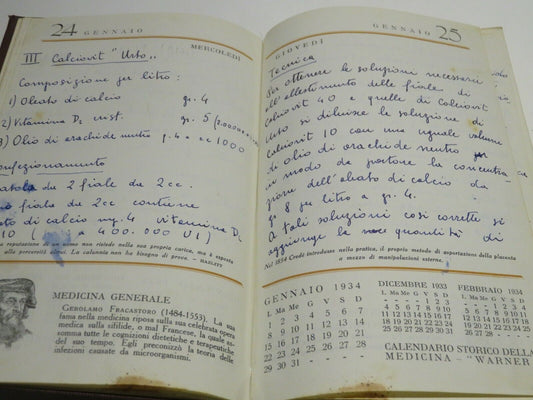 24
GENNAIO
MERCOLEDÌ
III Calciovit "Urto"
Composizione per litro:
1) Oleato di calcio gr. 4
2) Vitamina D2 crist. gr. 5 (2.000.000
3) Olio di arachide neutro q.b. a cc 1000
Confezionamento
Scatola da 2 fiale da 2cc.
fiala da 2cc contiene
di calcio mg. 4 vitamina D2
10 ( a 400.000 UI)
reputazione di un uomo non risiede nella sua propria carica, ma è esposta
alle perversità La calunnia non ha bisogno di prova. - HAZLITT
MEDICINA GENERALE
GEROLAMO FRACASTORO (1484-1553). La sua
fama nella medicina riposa sulla sua celebrata opera
sulla sifilide, o mal Francese, la quale
somma tutte le cognizioni dietetiche e terapeutiche
del suo tempo. Egli preconizzò la teoria delle
infezioni causate da microorganismi.
GIOVEDÌ
GENNAIO
25
Tecnica
Per ottenere le soluzioni necessarie
all'allestimento delle fiale di
Calciovit 40 e quelle di Calciovit
Urto si diluisce la soluzione di
Calciovit 10 con una uguale volume
di olio di arachide neutro
in modo da portare la concentra-
zione dell'oleato di calcio da
gr 8 per litro a gr. 4.
A tali soluzioni così corrette si
aggiunge la quantità di
Nel 1884 Credé introduceva nella pratica, il proprio metodo di asportazione della placenta
a mezzo di manipolazioni esterne.
GENNAIO 1934
L Ma Me G V S D
1 2 3 4 5 6 7
8 9 10 11 12 13 14
15 16 17 18 19 20 21
22 23 24 25 26 27 28
29 30 31 - - - -
DICEMBRE 1933
L Ma Me G V S D
- - - - 1 2 3
4 5 6 7 8 9 10
11 12 13 14 15 16 17
18 19 20 21 22 23 24
25 26 27 28 29 30 31
FEBBRAIO 1934
L Ma Me G V S D
- - - 1 2 3 4
5 6 7 8 9 10 11
12 13 14 15 16 17 18
19 20 21 22 23 24 25
26 27 28 - - - -
CALENDARIO STORICO DELLA
MEDICINA - "WARNER